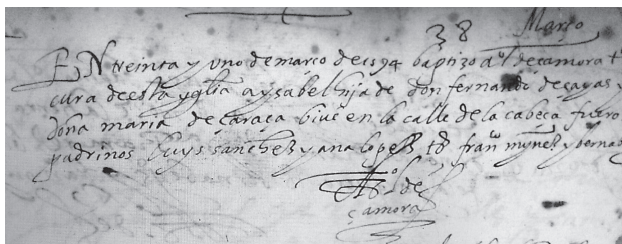 38 Março
EN treinta y uno de março de 1594 baptizo aº de çamora tᵉ
cura de esta yglia a ysabel hija de don fernando de çayas y
doña maria de caraça bive en la calle de la cabeça fuero
padrinos luys sanchez y ana lopez tº franᶜᵒ mynez y bernar
Aº de
çamora